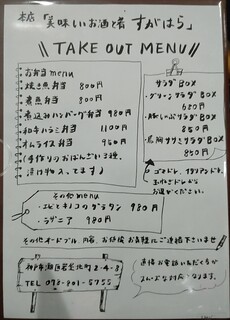 本店「美味しいお酒と肴 すがはら」
TAKE OUT MENU
お弁当menu
・焼き魚弁当 800円
・煮魚弁当 800円
・煮込みハンバーグ弁当 980円
・和牛ハラミ弁当 1100円
・オムライス弁当 950円
(手作りのおばんざい3種、
漬け物入ってます)
サラダBOX
・グリーンサラダBOX
680円
・豚しゃぶサラダBOX
850円
850円
ゴマドレ、イタリアンドレ、
お選びください。
その他menu
・エビとキノコのグラタン 980円
・ラザニア 980円
その他オードブル、内容、お値段 お気軽にご連絡下さいませ
神戸市灘区
TEL 078-801-5755
直接お電話いただくか